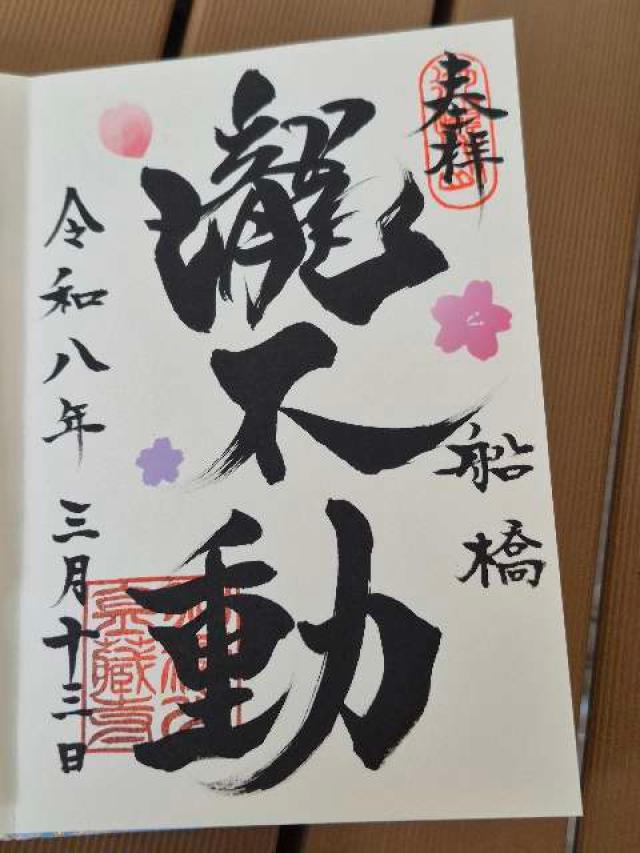 奉拝
船橋
瀧不動
令和八年 三月十三日